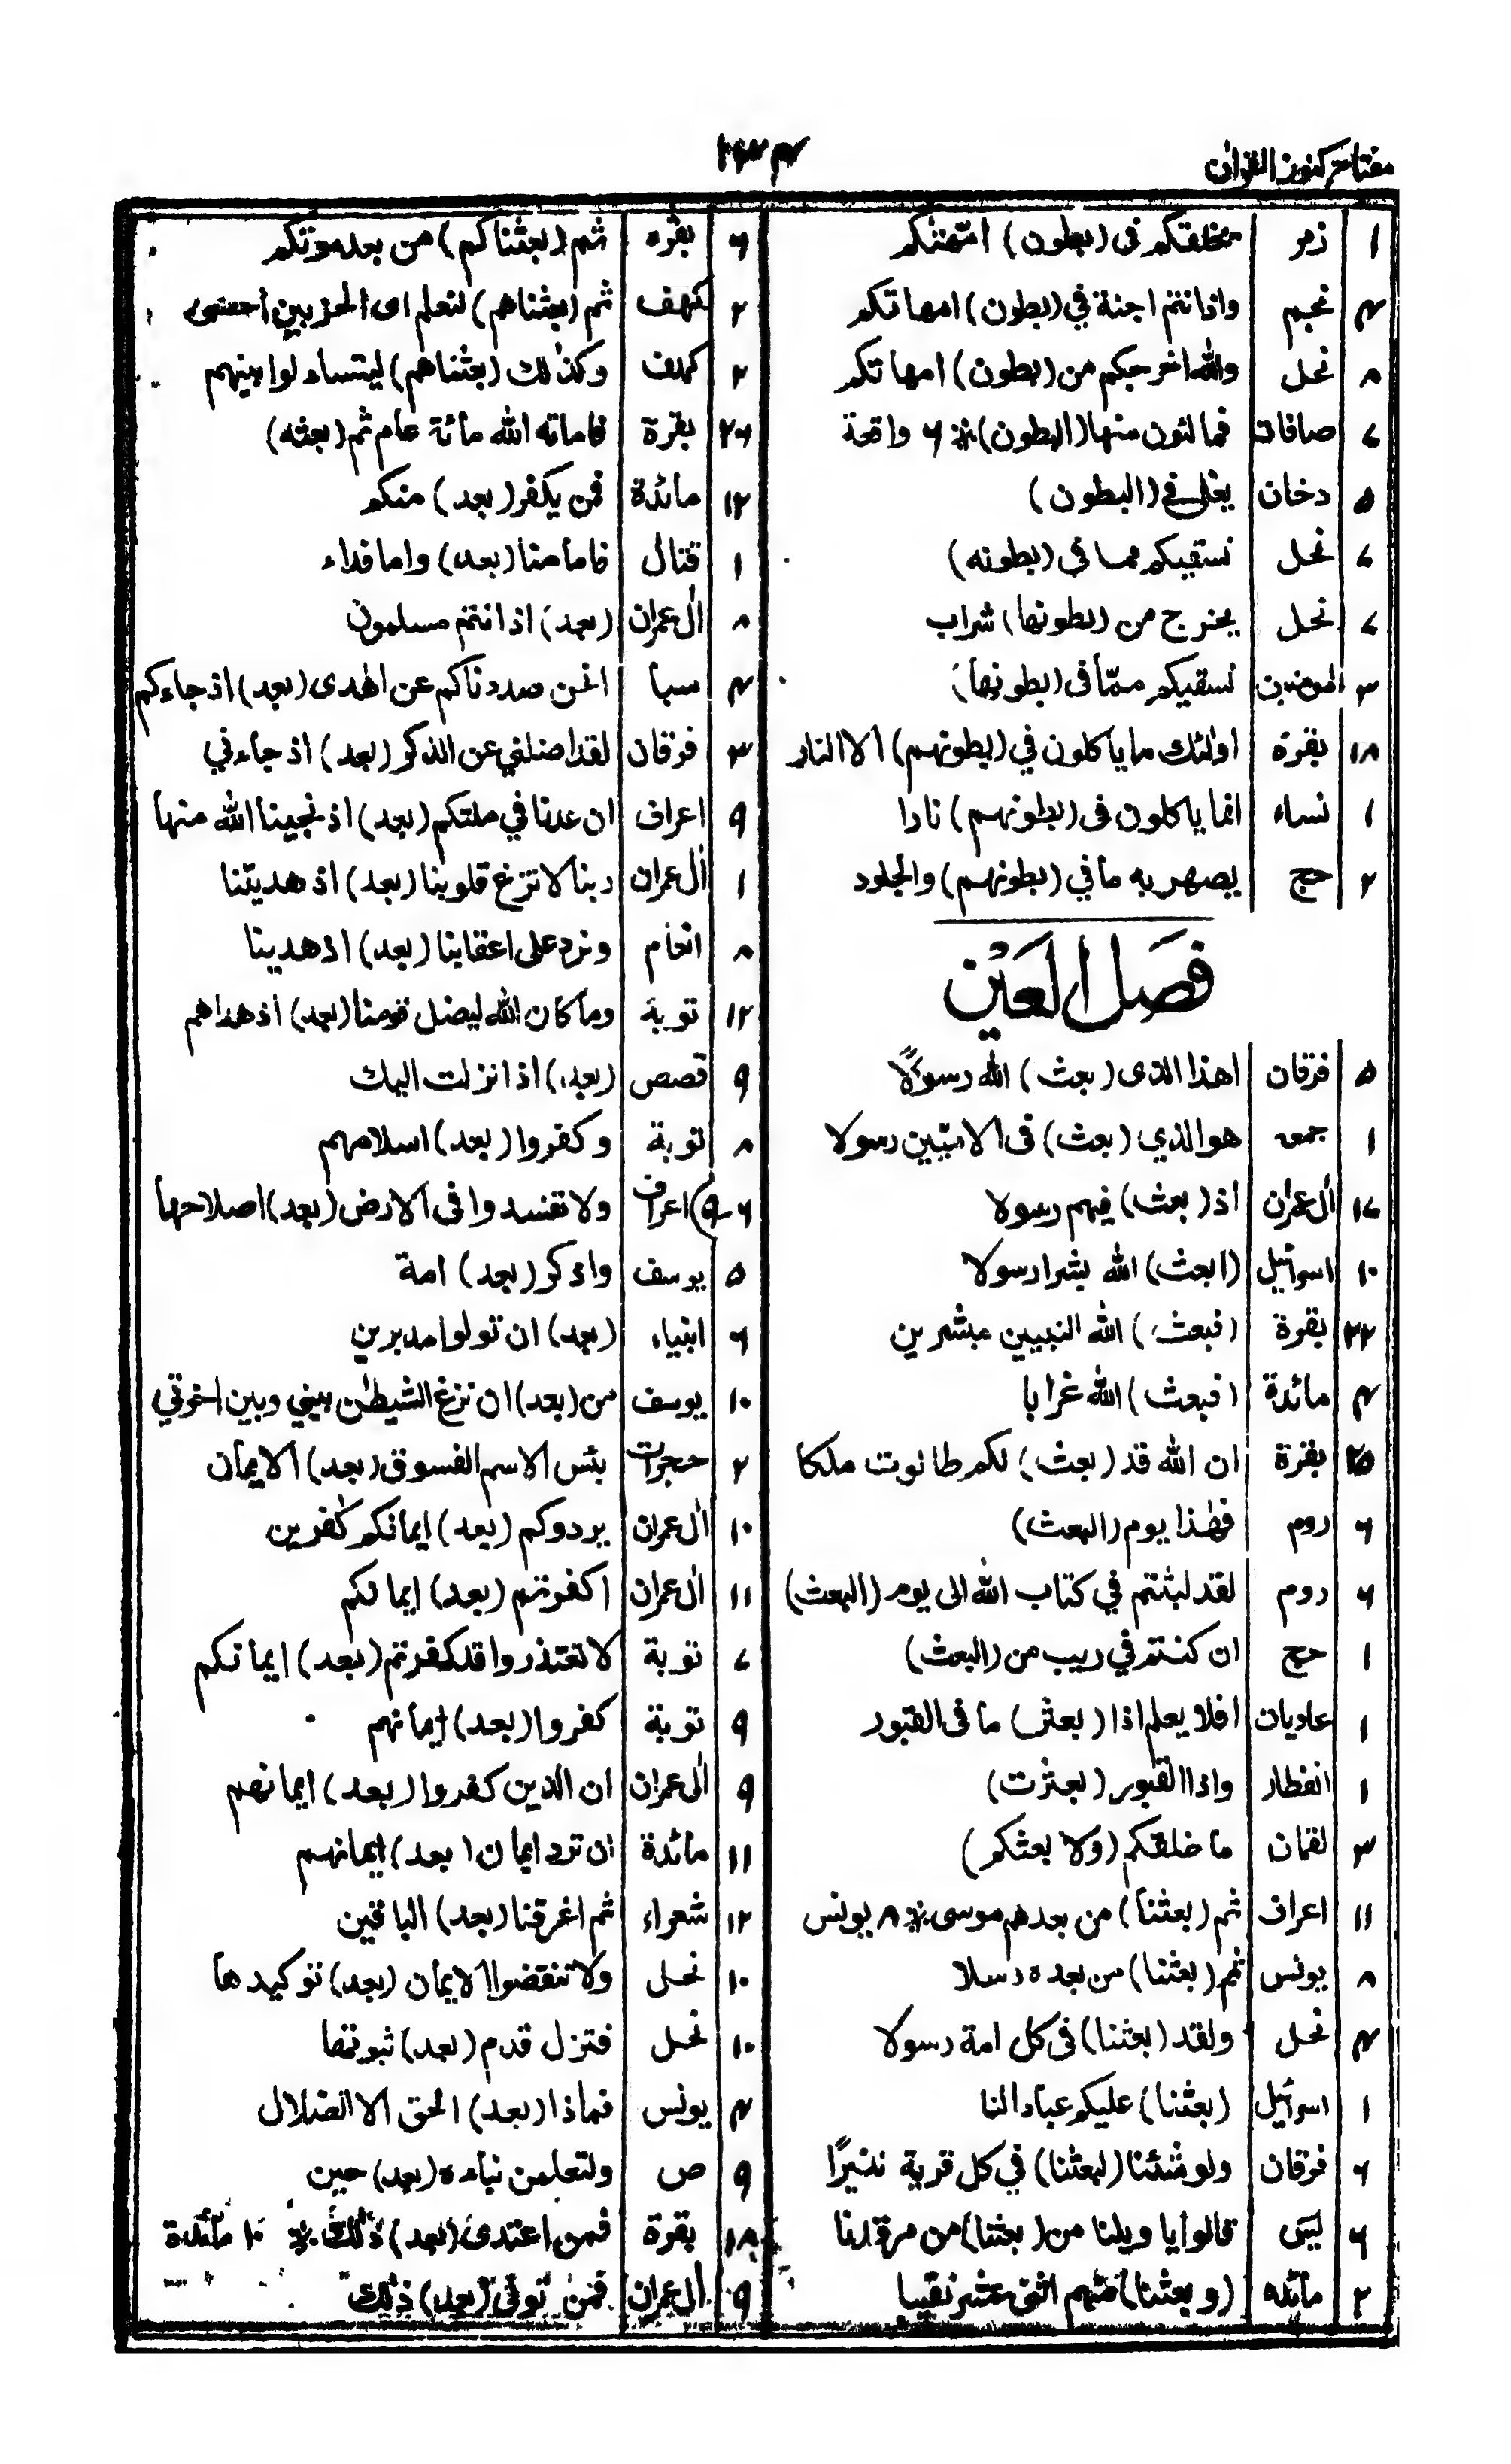 مفتاح كنوز القرآن
١ زمر يخلقكم فى (بطون) امهتكم
٣ نجم واذانتم اجنة في (بطون) امهاتكم
٨ نحل والله اخرجكم من (بطون) امهاتكم
٧ صافات فمالئون منها (البطون) ٪ ٢ واقعة
٥ دخان يغلى في (البطون)
٧ نحل نسقيكم مما في (بطونه)
٧ نحل يخرج من (بطونها) شراب
٣ المؤمنين نسقيكم ممّا فى (بطونها)
١٨ بقرة اولئك ما ياكلون في (بطونهم) الا النار
١ نساء انما ياكلون فى (بطونهم) نارا
٢ حج يصهر به ما في (بطونهم) والجلود
فصل العين
٥ فرقان اهذا الذى (بعث) الله رسولاً
١ جمعه هو الذي (بعث) فى الاميّين رسولا
١٧ اٰل عمران اذ (بعث) فيهم رسولا
١٠ اسرآئيل (ابعث) الله بشرا رسولا
٢٢ بقرة (فبعث) الله النبيين مبشرين
٣ مائدة (فبعث) الله غرابا
٢٥ بقرة ان الله قد (بعث) لكم طالوت ملكا
٦ روم فهٰذا يوم (البعث)
٦ روم لقد لبثتم في كتاب الله الى يوم (البعث)
١ حج ان كنتم في ريب من (البعث)
١ عاديات افلا يعلم اذا (بعثر) ما فى القبور
١ انفطار واذا القبور (بعثرت)
٣ لقمان ما خلقكم (ولا بعثكم)
١١ اعراف ثم (بعثنا) من بعدهم موسى ٪ ٨ يونس
٨ يونس ثم (بعثنا) من بعده رسلا
٣ نحل ولقد (بعثنا) فى كل امة رسولا
١ اسرآئيل (بعثنا) عليكم عبادا لنا
٦ فرقان ولو شئنا (لبعثنا) في كل قرية نذيرًا
٦ ليس قالوا يا ويلنا من (بعثنا) من مرقدنا
٢ مآئده (وبعثنا) منهم اثنى عشر نقيبا
٦ بقره ثم (بعثناكم) من بعد موتكم
٢ كهف ثم (بعثناهم) لنعلم اى الحزبين احصى
٢ كهف وكذلك (بعثناهم) ليتساءلوا بينهم
٢٦ بقرة فاماته الله مائة عام ثم (بعثه)
١٢ مائدة فمن يكفر (بعد) منكم
١ قتال فاما منا (بعد) واما فداء
٨ اٰل عمران (بعد) اذ انتم مسلمون
٣ سبا انحن صددناكم عن الهدى (بعد) اذ جاءكم
٣ فرقان لقد اضلني عن الذكر (بعد) اذ جاءني
٩ اعراف ان عدنا في ملتكم (بعد) اذ نجينا الله منها
١ اٰل عمران ربنا لا تزغ قلوبنا (بعد) اذ هديتنا
٨ انعام ونرد على اعقابنا (بعد) اذ هدينا
١٢ توبة وما كان الله ليضل قومنا (بعد) اذ هداهم
٩ قصص (بعد) اذ انزلت اليك
٨ توبة وكفروا (بعد) اسلامهم
٦-٩ اعراف ولا تفسدوا فى الارض (بعد) اصلاحها
٥ يوسف وادكر (بعد) امة
٦ انبياء (بعد) ان تولوا مدبرين
١٠ يوسف من (بعد) ان نزغ الشيطٰن بيني وبين اخوتي
٢ حجرات بئس الاسم الفسوق (بعد) الايمان
١٠ اٰل عمران يردوكم (بعد) ايمانكم كٰفرين
١١ اٰل عمران اكفرتم (بعد) ايمانكم
٧ توبة لا تعتذروا قد كفرتم (بعد) ايمانكم
٩ توبة كفروا (بعد) ايمانهم
٩ اٰل عمران ان الذين كفروا (بعد) ايمانهم
١١ مائدة ان ترد ايمان (بعد) ايمانهم
١٢ شعراء ثم اغرقنا (بعد) الباقين
١٠ نحل ولا تنقضوا الايمان (بعد) توكيدها
١٠ نحل فتزل قدم (بعد) ثبوتها
٣ يونس فماذا (بعد) الحق الا الضلال
٩ ص ولتعلمن نباءه (بعد) حين
١٨ بقرة فمن اعتدى (بعد) ذٰلك ٪ ١٠ مآئدة
٩ اٰل عمران فمن تولى (بعد) ذٰلك